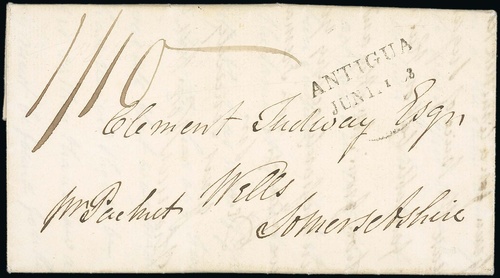 1/10
ANTIGUA
JUN 1. 1 8
Clement Tudway Esqr,
pr Packet Wells
Somersetshire